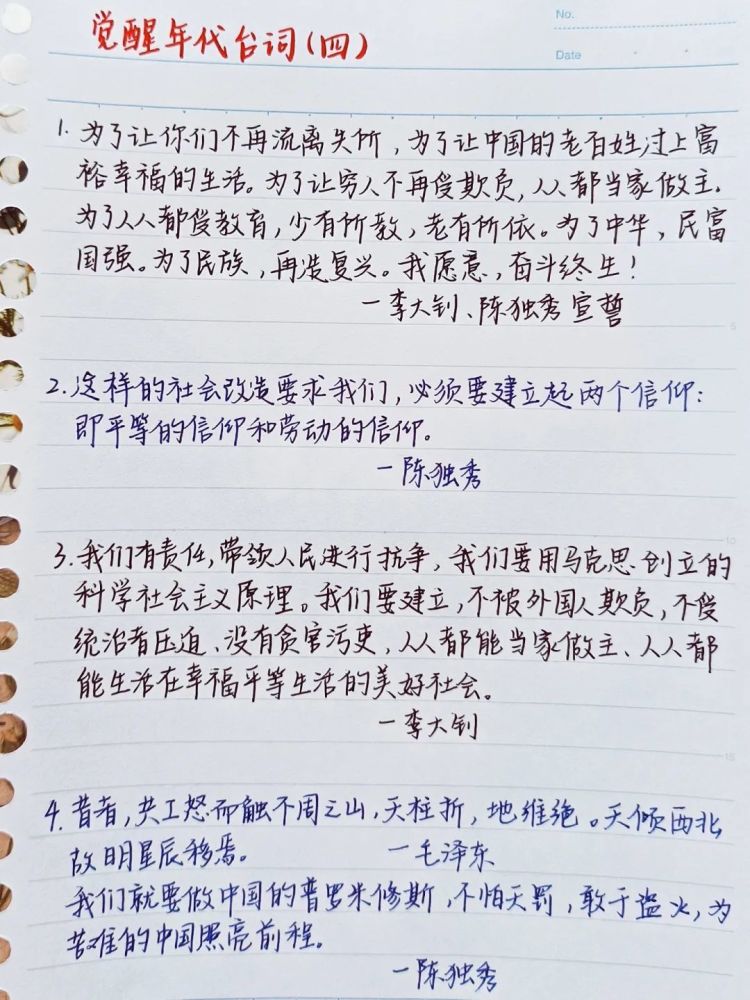 No.
觉醒年代台词(四)
Date
1. 为了让你们不再流离失所，为了让中国的老百姓过上富
裕幸福的生活。为了让穷人不再受欺负，人人都当家做主.
为了人人都受教育，少有所教，老有所依。为了中华，民富
国强。为了民族，再造复兴。我愿意，奋斗终生！
一李大钊、陈独秀宣誓
5
2. 这样的社会改造要求我们，必须要建立起两个信仰：
即平等的信仰和劳动的信仰。
一陈独秀
10
3. 我们有责任，带领人民进行抗争，我们要用马克思创立的
科学社会主义原理。我们要建立，不被外国人欺负，不受
统治者压迫、没有贪官污吏，人人都能当家做主、人人都
能生活在幸福平等生活的美好社会。
一李大钊
15
4. 昔者，共工怒而触不周之山，天柱折，地维绝。天倾西北
故明星辰移焉。 一毛泽东
我们就要做中国的普罗米修斯，不怕天罚，敢于盗火，为
苦难的中国照亮前程。
一陈独秀